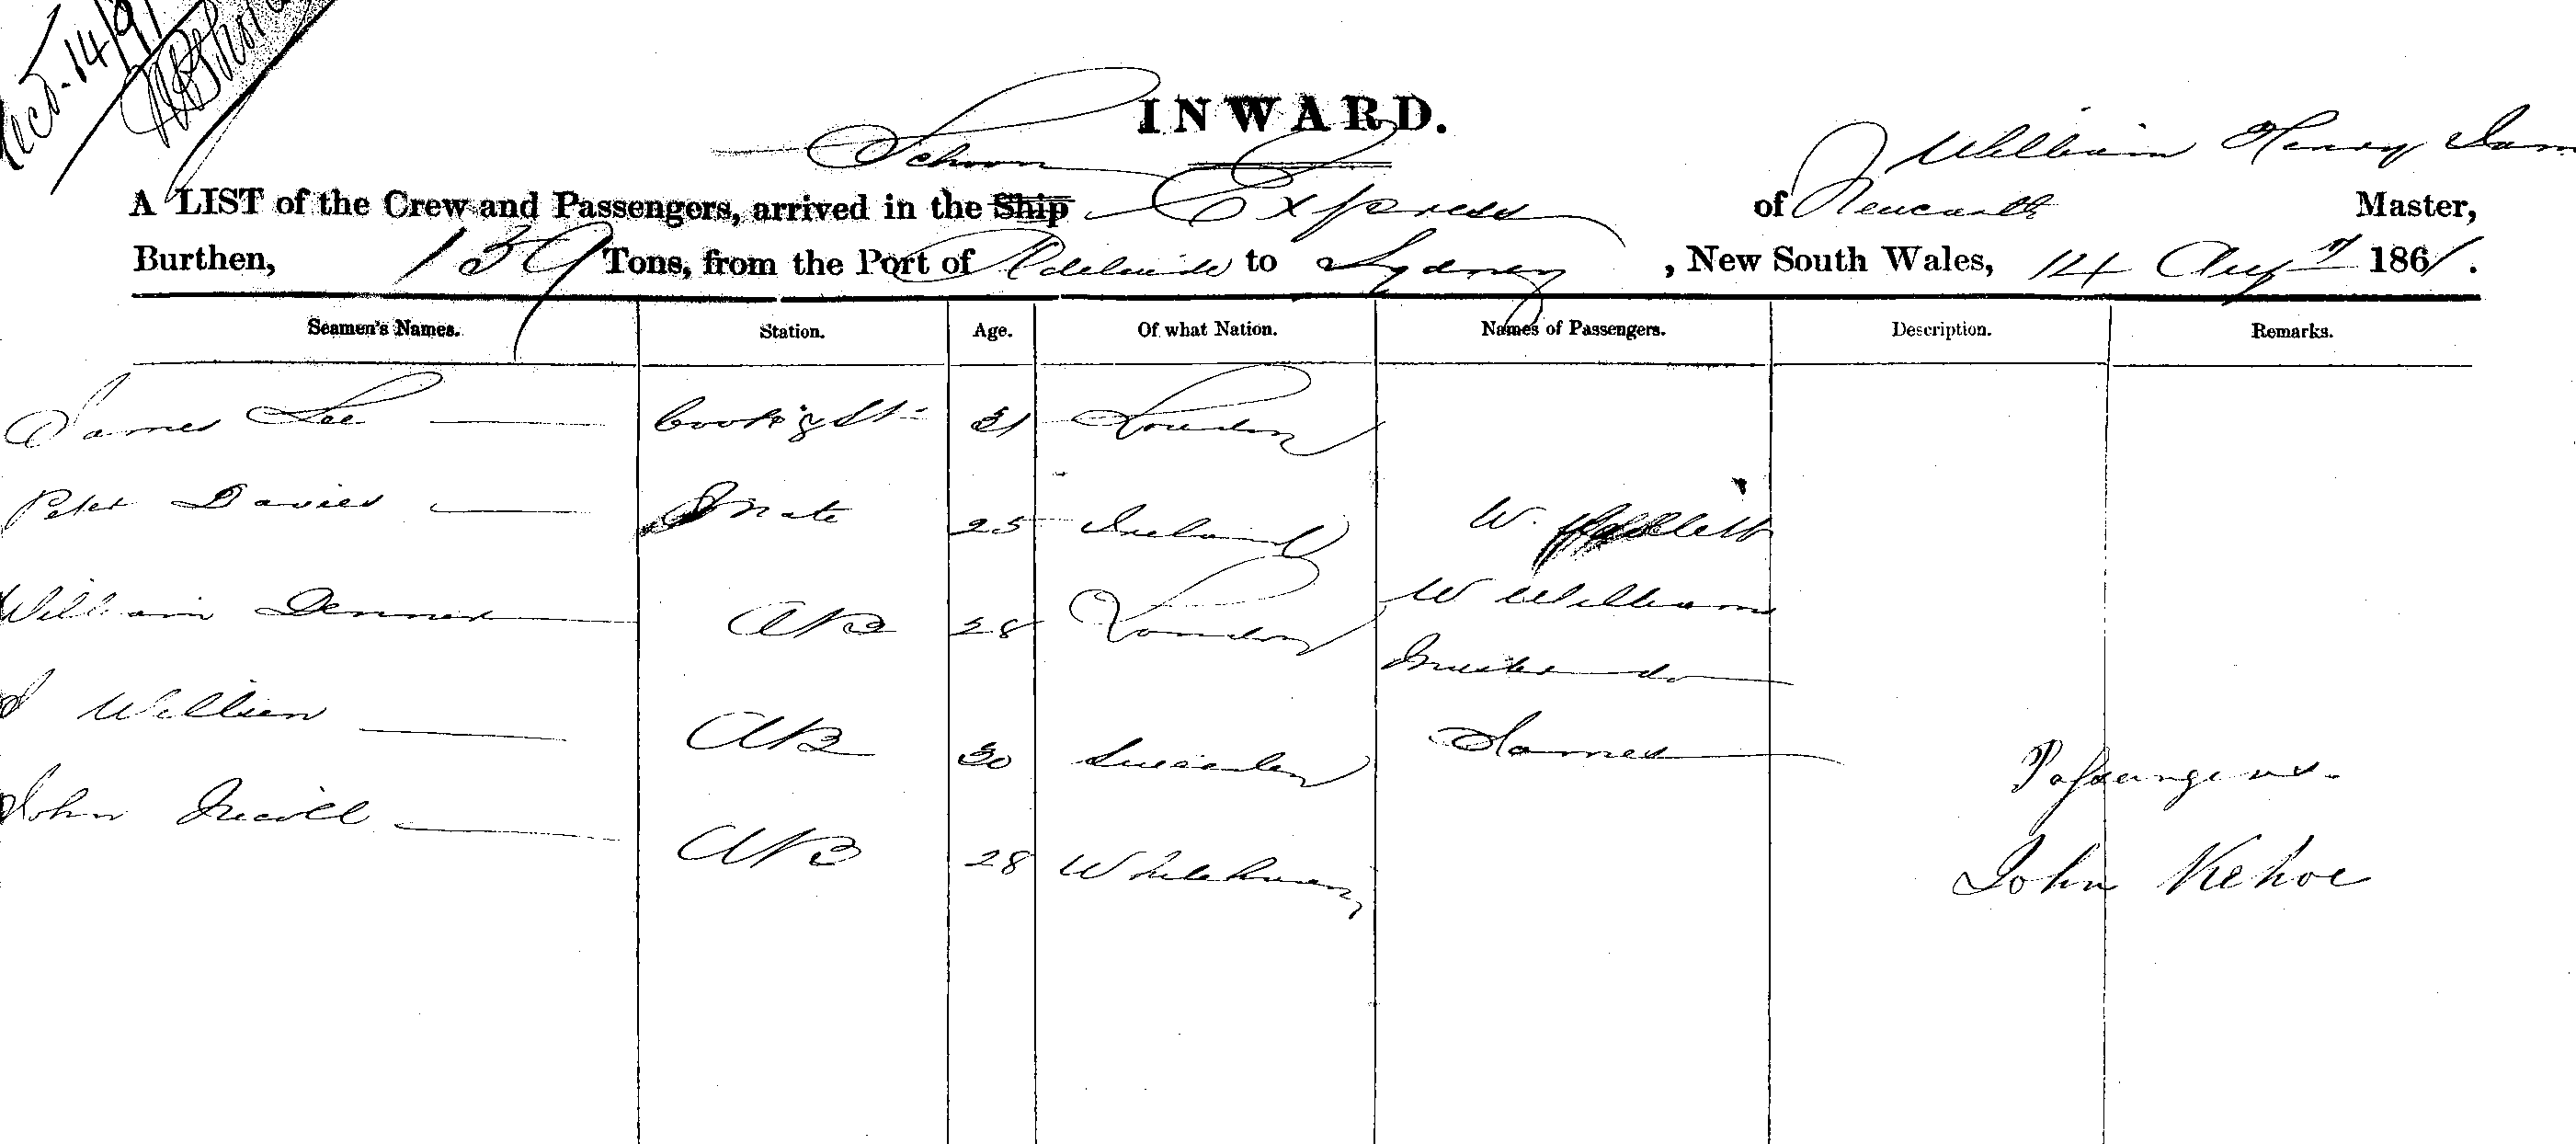 14/9/
INWARD.
William Henry
Schoon
A LIST of the Crew and Passengers, arrived in the Ship Express of Newcastle Master,
Burthen, 139 Tons, from the Port of Adelaide to Sydney, New South Wales, 14 Augt 1861.
Seamen's Names. Station. Age. Of what Nation. Names of Passengers. Description. Remarks.
James Lee Cook & St 31 London
Peter Davies Mate 25 Ireland W.
William Denner AB 28 London W Williams
J Willien AB 30 Sweeden James
Passengers.
John AB 28 Whitehaven
John Kehoe